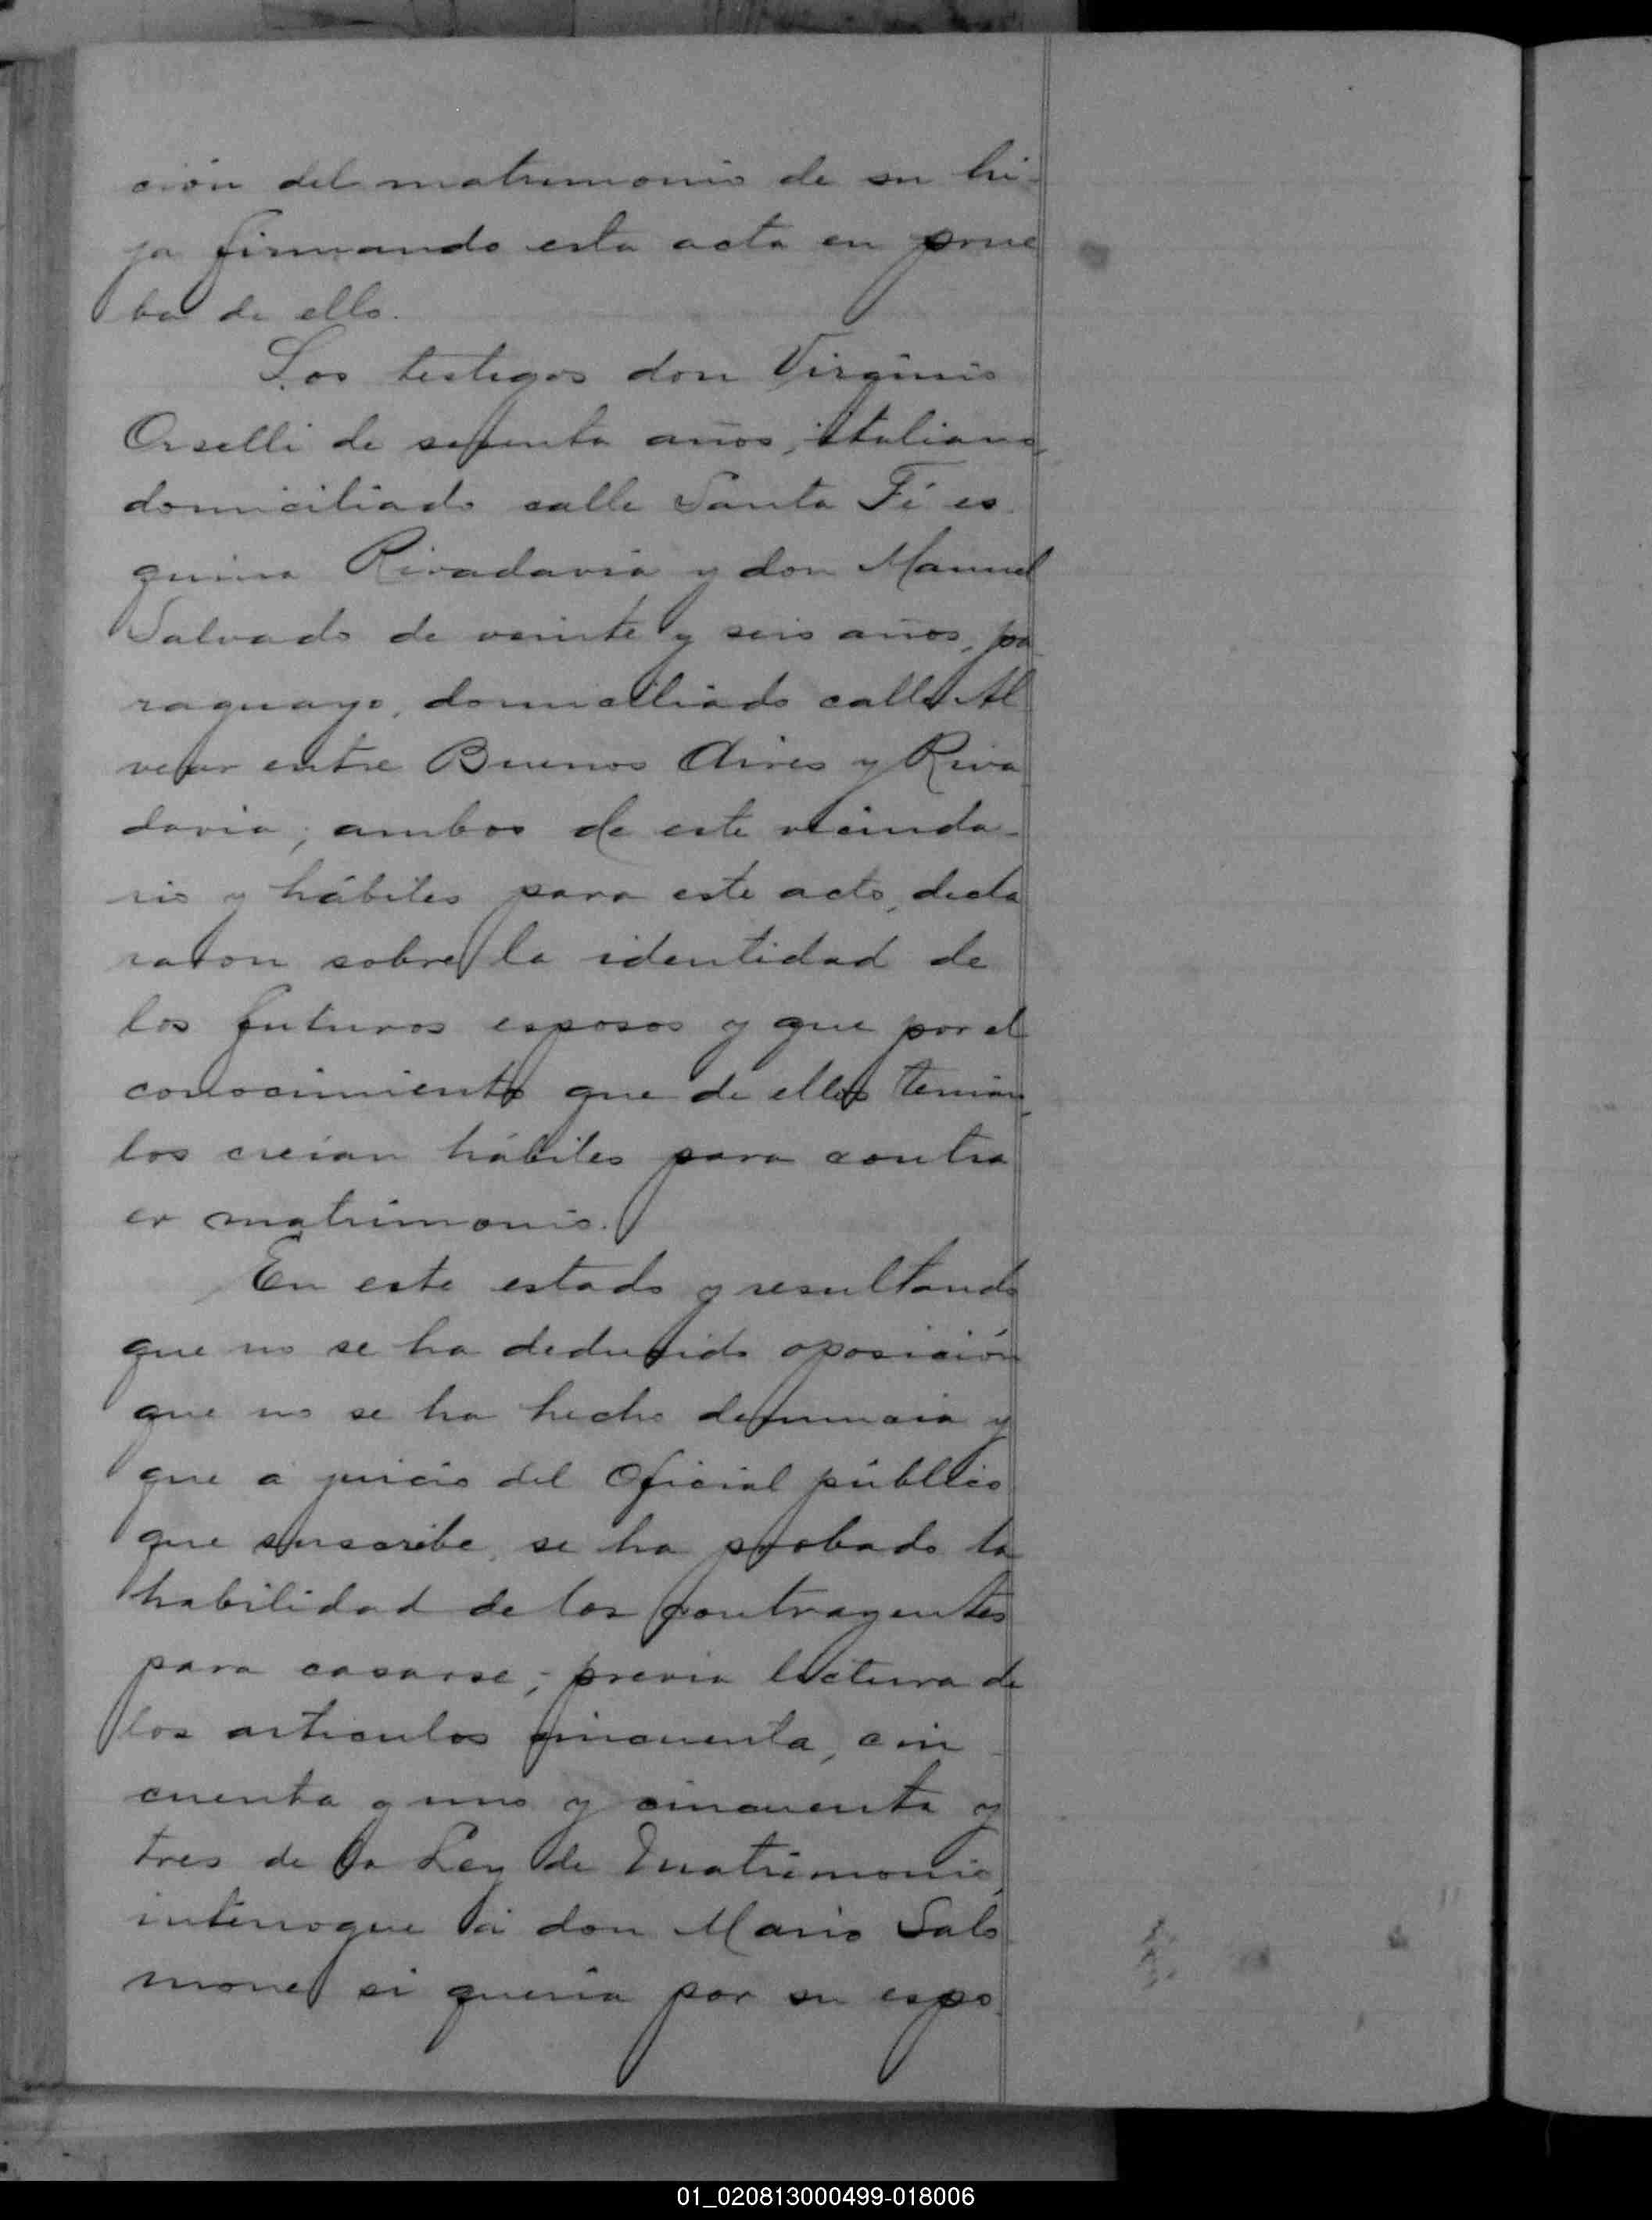 ción del matrimonio de su hi-
ja firmando esta acta en prue
ba de ello.
Los testigos don Virginio
Orselli de setenta años, italiano,
domiciliado calle Santa Fé es
quina Rivadavia y don Manuel
Salvado de veinte y seis años, pa
raguayo, domiciliado calle Al
vear entre Buenos Aires y Riva
davia; ambos de este vecinda-
rio y hábiles para este acto, decla
raron sobre la identidad de
los futuros esposos y que por el
conocimiento que de ellos tenian,
los creian hábiles para contra
er matrimonio.
En este estado y resultando
que no se ha deducido oposición
que no se ha hecho denuncia y
que á juicio del Oficial público
que suscribe, se ha probado la
habilidad de los contrayentes
para casarse; previa lectura de
los articulos cincuenta, cin-
cuenta y uno y cincuenta y
tres de la Ley de Matrimonio,
interrogue á don Mario Salo
mone si queria por su espo
01_020813000499-018006